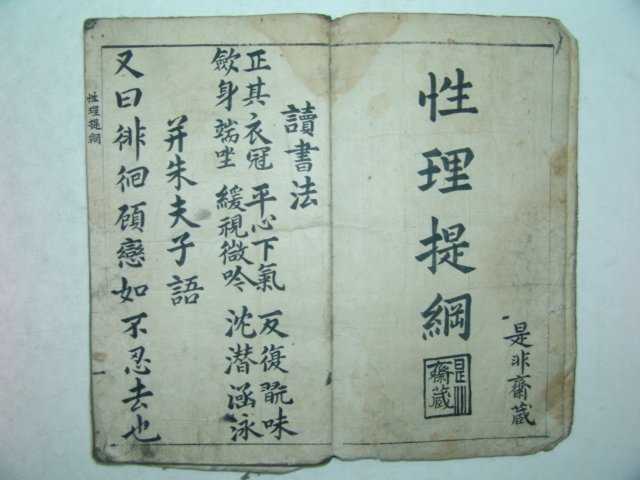 性理提綱
是非齋藏
是非
齋藏
讀書法
正其衣冠 平心下氣 反復翫味
斂身端坐 緩視微吟 沈潛涵泳
并朱夫子語
又曰徘徊顧戀如不忍去也
性理提綱